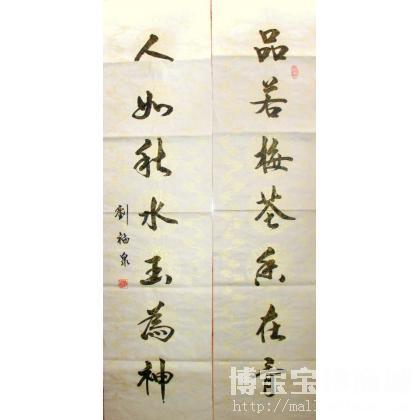 品若梅花香在骨
人如秋水玉为神
劉福泉
博宝
http://mal